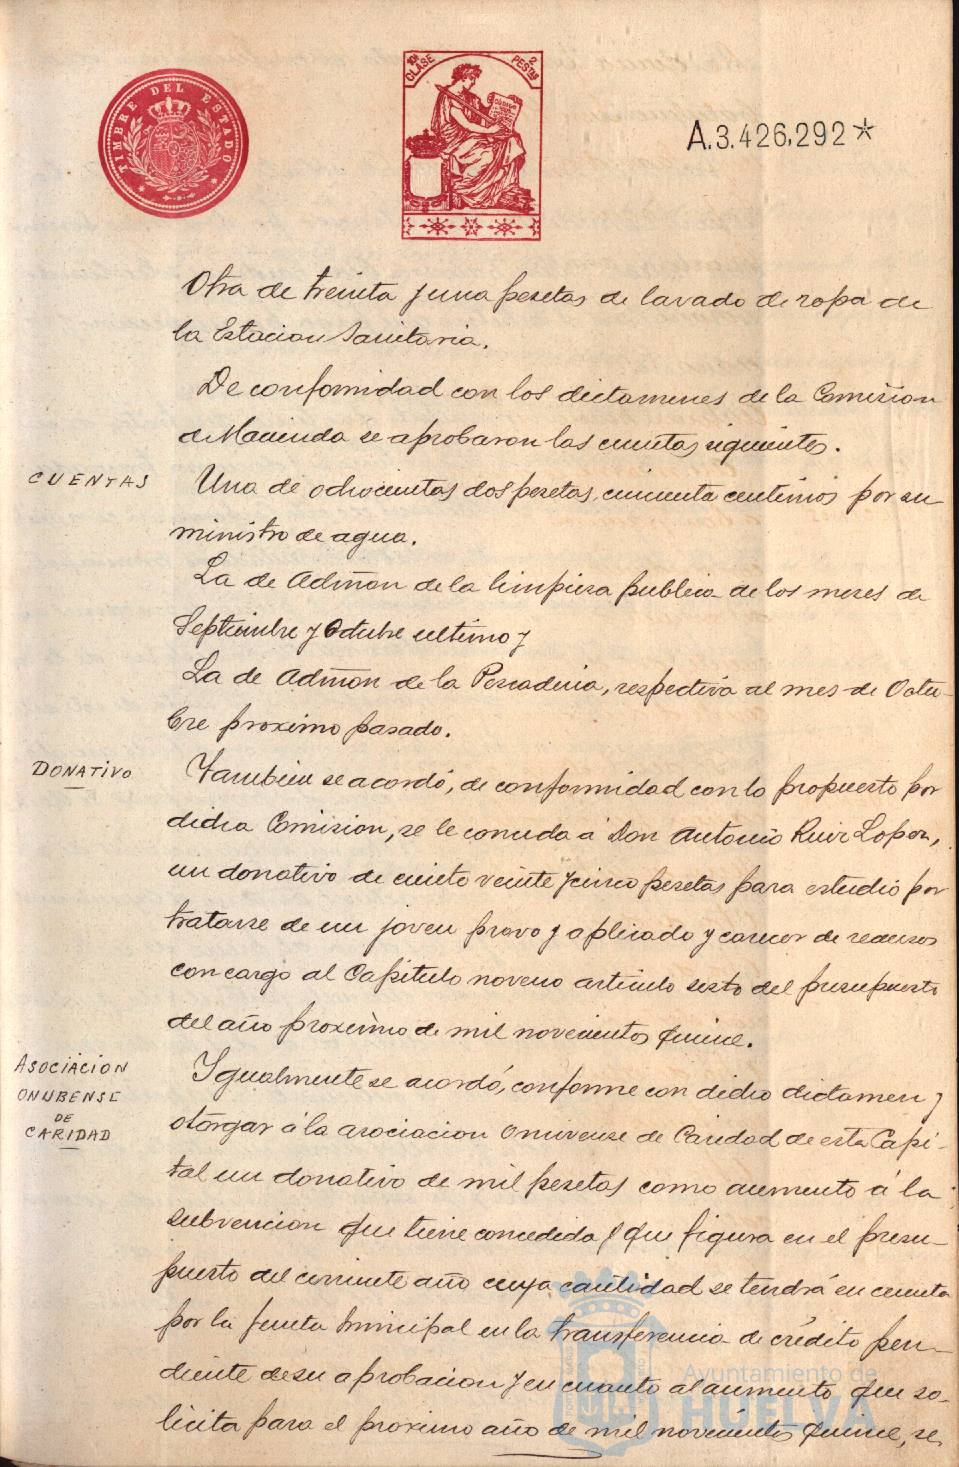 TIMBRE DEL ESTADO
10ª CLASE
2 PESTAS
A.3.426,292*
Otra de treinta y una pesetas de lavado de ropa de
la Estacion Sanitaria.
De conformidad con los dictamenes de la Comision
de Hacienda se aprobaron las cuentas siguientes.
CUENTAS
Una de ochocientas dos pesetas, cincuenta centimos por su
ministro de agua.
La de Admñon de la limpieza publica de los meses de
Septiembre y Octubre ultimo y
La de Admñon de la Pescaderia, respectiva al mes de Octu-
bre proximo pasado.
DONATIVO
Tambien se acordó, de conformidad con lo propuesto por
dicha Comision, se le conceda á Don Antonio Ruiz Lopez,
un donativo de ciento veinte y cinco pesetas para estudio por
tratarse de un joven pravo y aplicado y carecer de recursos
con cargo al Capitulo noveno articulo sexto del presupuesto
del año proximo de mil novecientos quince.
ASOCIACION
ONUBENSE
DE
CARIDAD
Ygualmente se acordó, conforme con dicho dictamen y
otorgar á la asociacion Onuvense de Caridad de esta Capi-
tal un donativo de mil pesetas como aumento á la
subvencion que tiene concedida y que figura en el presu-
puesto del corriente año cuya cantidad se tendrá en cuenta
por la Junta Municipal en la transferencia de crédito pen-
diente de su aprobacion y en cuanto al aumento que so-
licita para el proximo año de mil novecientos quince, se
Ayuntamiento de
HUELVA